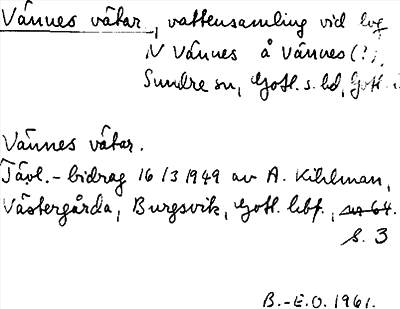 Vännes vätar, vattensamling vid lug
N Vännes å Vännes (?),
Sundre sn, Gotl. s. hd, Gotl.
Vännes vätar.
Tävl.-bidrag 16/3 1949 av A. Kihlman,
Västergårda, Burgsvik, Gotl. lbf.,
s. 3
B.-E.O. 1961.